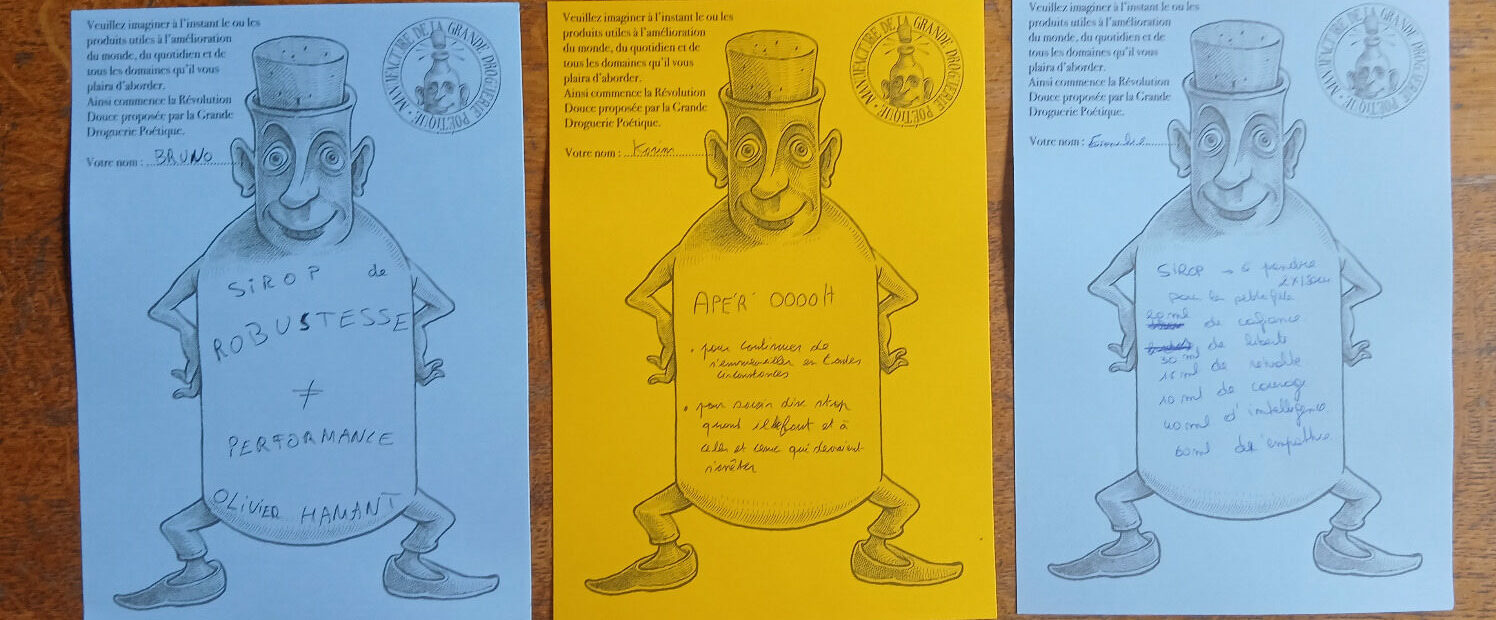 Veuillez imaginer à l'instant le ou les
produits utiles à l'amélioration
du monde, du quotidien et de
tous les domaines qu'il vous
plaira d'aborder.
Ainsi commence la Révolution
Douce proposée par la Grande
Droguerie Poétique.
Votre nom : BRUNO
MANUFACTURE DE LA GRANDE DROGUERIE POÉTIQUE
SIROP de
ROBUSTESSE
≠
PERFORMANCE
OLIVIER HAMANT
Veuillez imaginer à l'instant le ou les
produits utiles à l'amélioration
du monde, du quotidien et de
tous les domaines qu'il vous
plaira d'aborder.
Ainsi commence la Révolution
Douce proposée par la Grande
Droguerie Poétique.
Votre nom : Karim
MANUFACTURE DE LA GRANDE DROGUERIE POÉTIQUE
APÉR' OOOOH
• pour continuer de
s'emmerveiller en toutes
circonstances
• pour savoir dire stop
quand il le faut et à
celles et ceux qui devraient
s'arrêter
Veuillez imaginer à l'instant le ou les
produits utiles à l'amélioration
du monde, du quotidien et de
tous les domaines qu'il vous
plaira d'aborder.
Ainsi commence la Révolution
Douce proposée par la Grande
Droguerie Poétique.
Votre nom :
MANUFACTURE DE LA GRANDE DROGUERIE POÉTIQUE
SIROP → à prendre
pour la petite fille
20 ml de cofiance
30 ml de liberté
15 ml de révolte
10 ml de courage
40 ml d'intelligence
60 ml de d'empathie